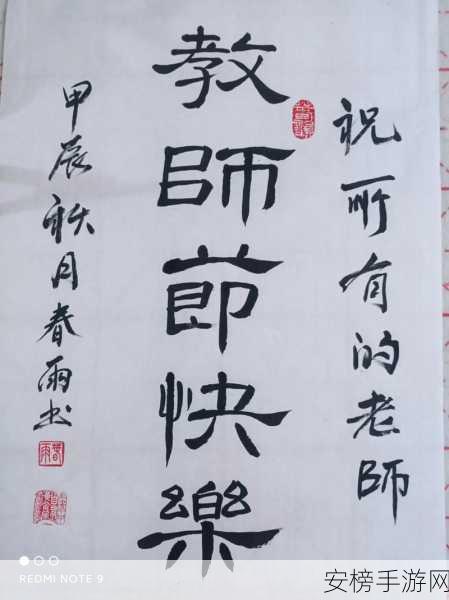 祝所有的老師
教師節快樂
甲辰秋月春雨书
REDMI NOTE 9
安榜手游网